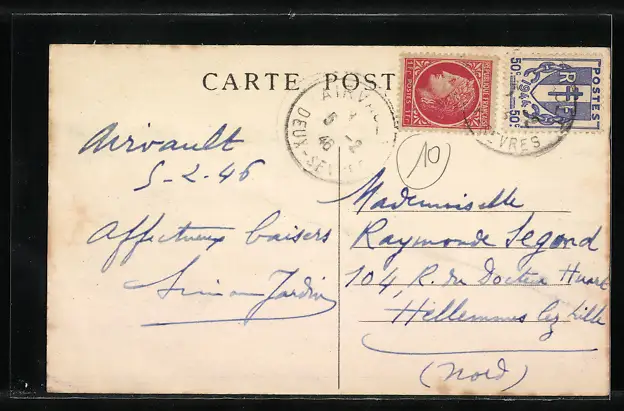 CARTE POST
AIRVAULT
5-2
46
DEUX-SÈVRES
RÉPUBLIQUE FRANÇAISE
1F POSTES 1F
POSTES
RF
50c 1944 50c
VRES
10
Airvault
5-2-46
Affectueux baisers
Jardin
Mademoiselle
Raymonde Segond
104, R. du Docteur Huart
Hellemmes lez Lille
(Nord)